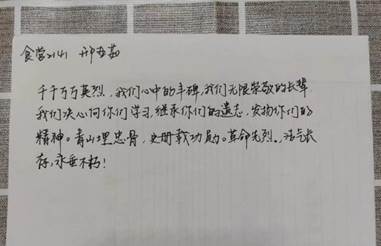 食营2141 邢
千千万万英烈,我们心中的丰碑,我们无限崇敬的长辈
我们决心向你们学习,继承你们的遗志,发扬你们的
精神。青山埋忠骨,史册载功勋。革命先烈,浩气长
存,永垂不朽!